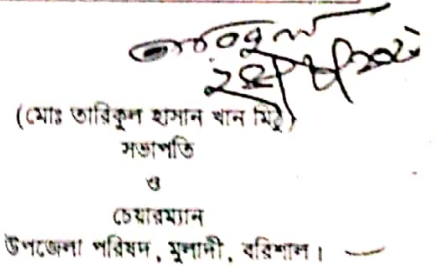 (মোঃ তারিকুল হাসান খান মিঠু)
সভাপতি
ও
চেয়ারম্যান
উপজেলা পরিষদ, মুলাদী, বরিশাল।